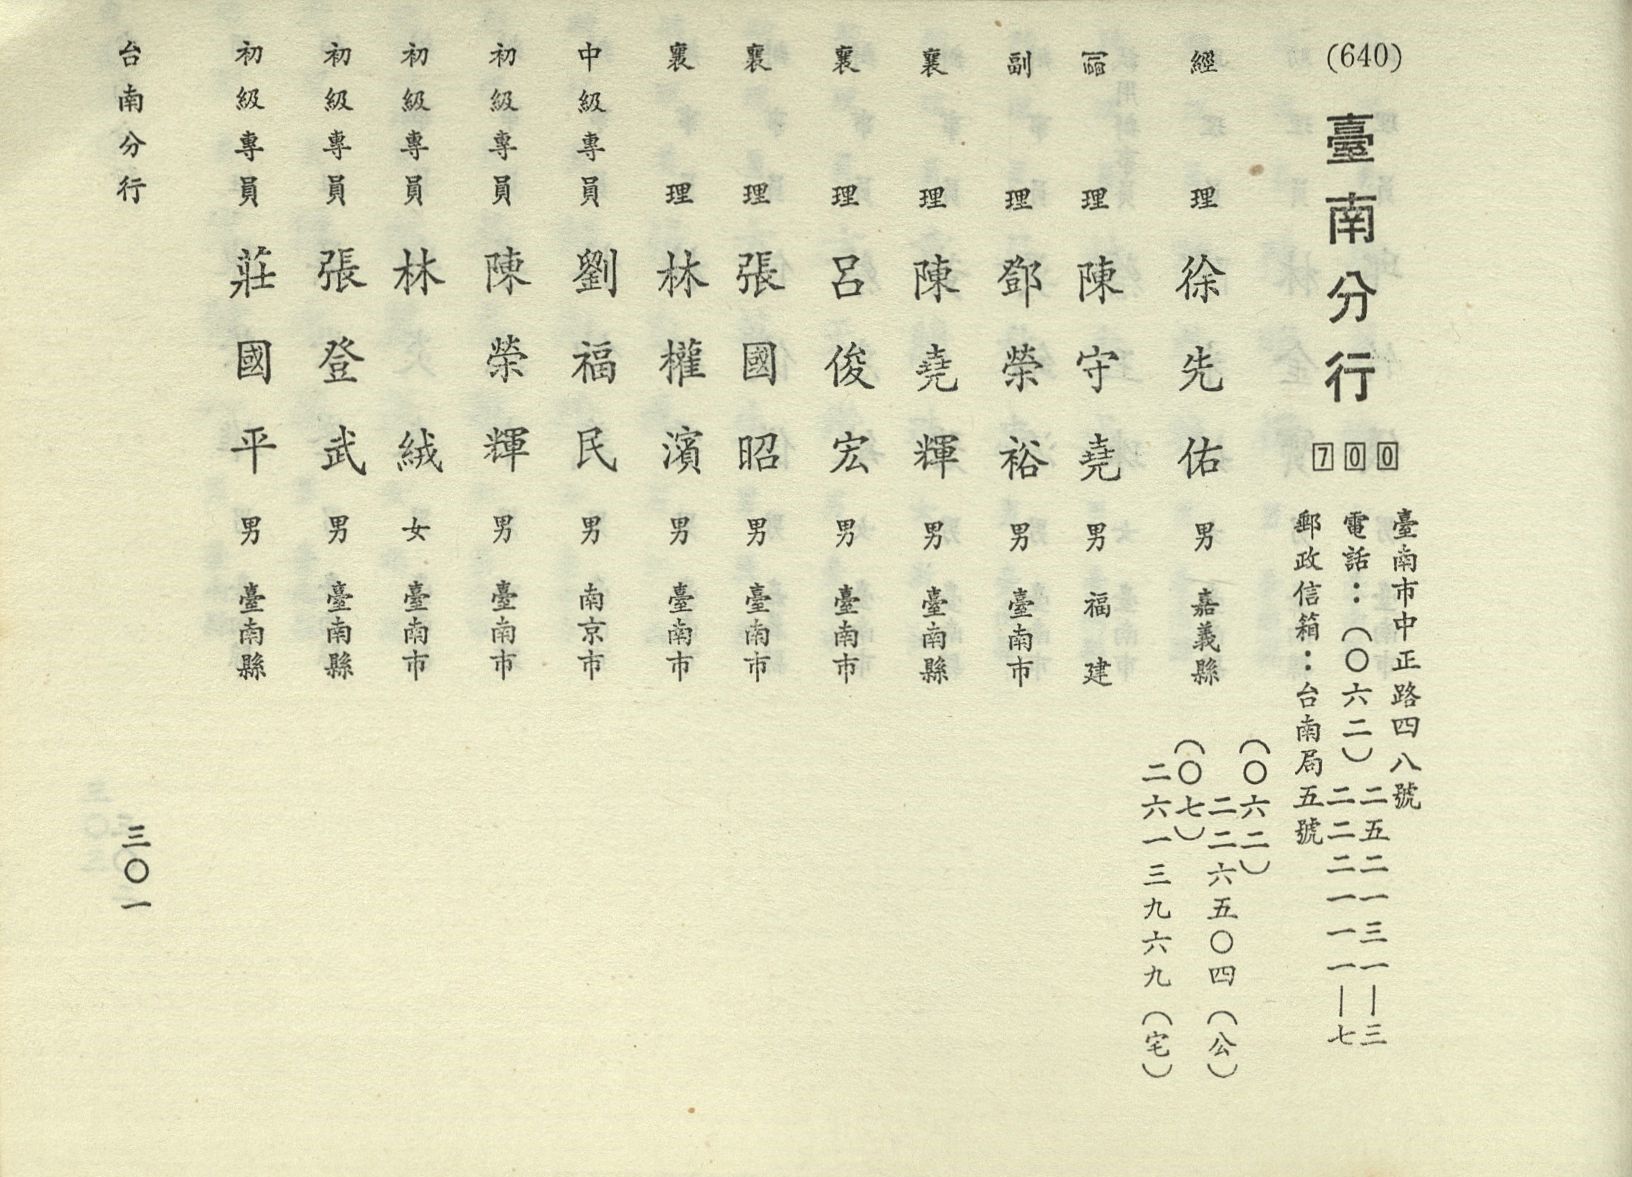 (640)
臺南分行
700
臺南市中正路四八號
電話：（〇六二）二五二一三一―三
二二二一一一―七
郵政信箱：台南局五號
經理 徐先佑 男 嘉義縣
（〇六二）
二二六五〇四（公）
（〇七）
二六一三九六九（宅）
副理 陳守堯 男 福建
副理 鄧榮裕 男 臺南市
襄理 陳堯輝 男 臺南縣
襄理 呂俊宏 男 臺南市
襄理 張國昭 男 臺南市
襄理 林權濱 男 臺南市
中級專員 劉福民 男 南京市
初級專員 陳榮輝 男 臺南市
初級專員 林絨 女 臺南市
初級專員 張登武 男 臺南縣
初級專員 莊國平 男 臺南縣
台南分行
三〇一